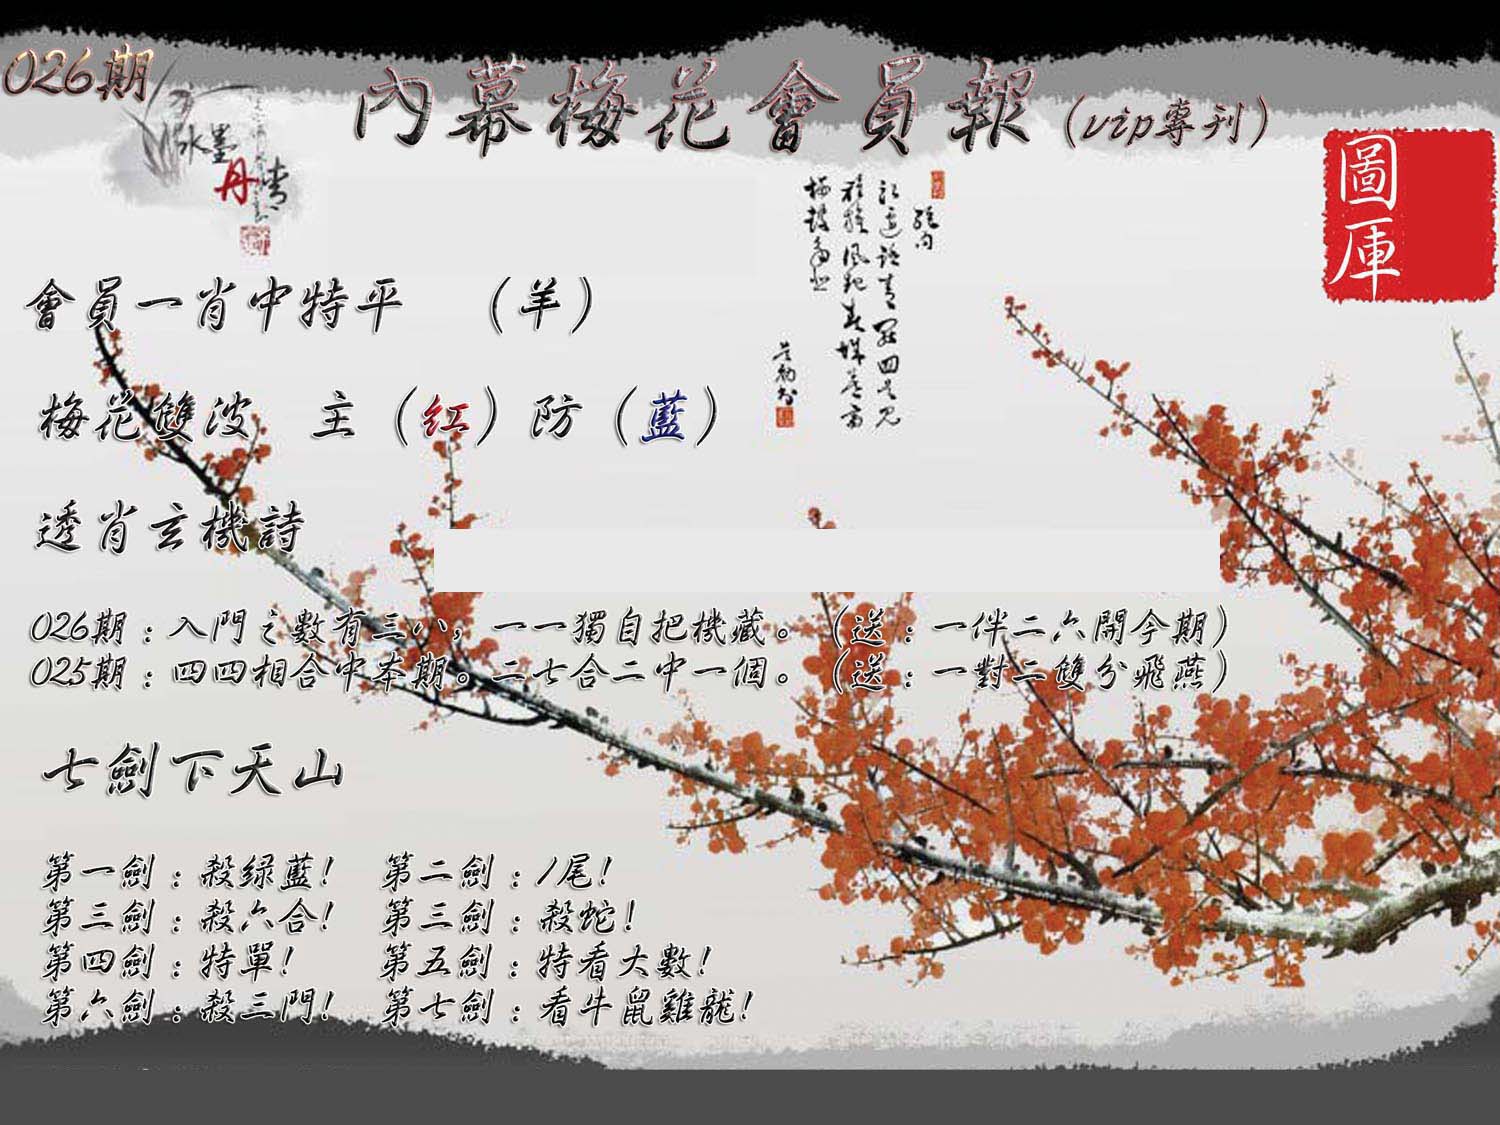 026期
內幕梅花會員報(vip專刊)
水墨
丹青
圖庫
會員一肖中特平 (羊)
梅花雙波 主(红)防(藍)
透肖玄機詩
026期:入門之數有三八,一一獨自把機藏。(送:一伴二六開今期)
025期:四四相合中本期。二七合二中一個。(送:一對二雙分飛燕)
七劍下天山
第一劍:殺绿藍! 第二劍:1尾!
第三劍:殺六合! 第三劍:殺蛇!
第四劍:特單! 第五劍:特看大數!
第六劍:殺三門! 第七劍:看牛鼠雞龍!